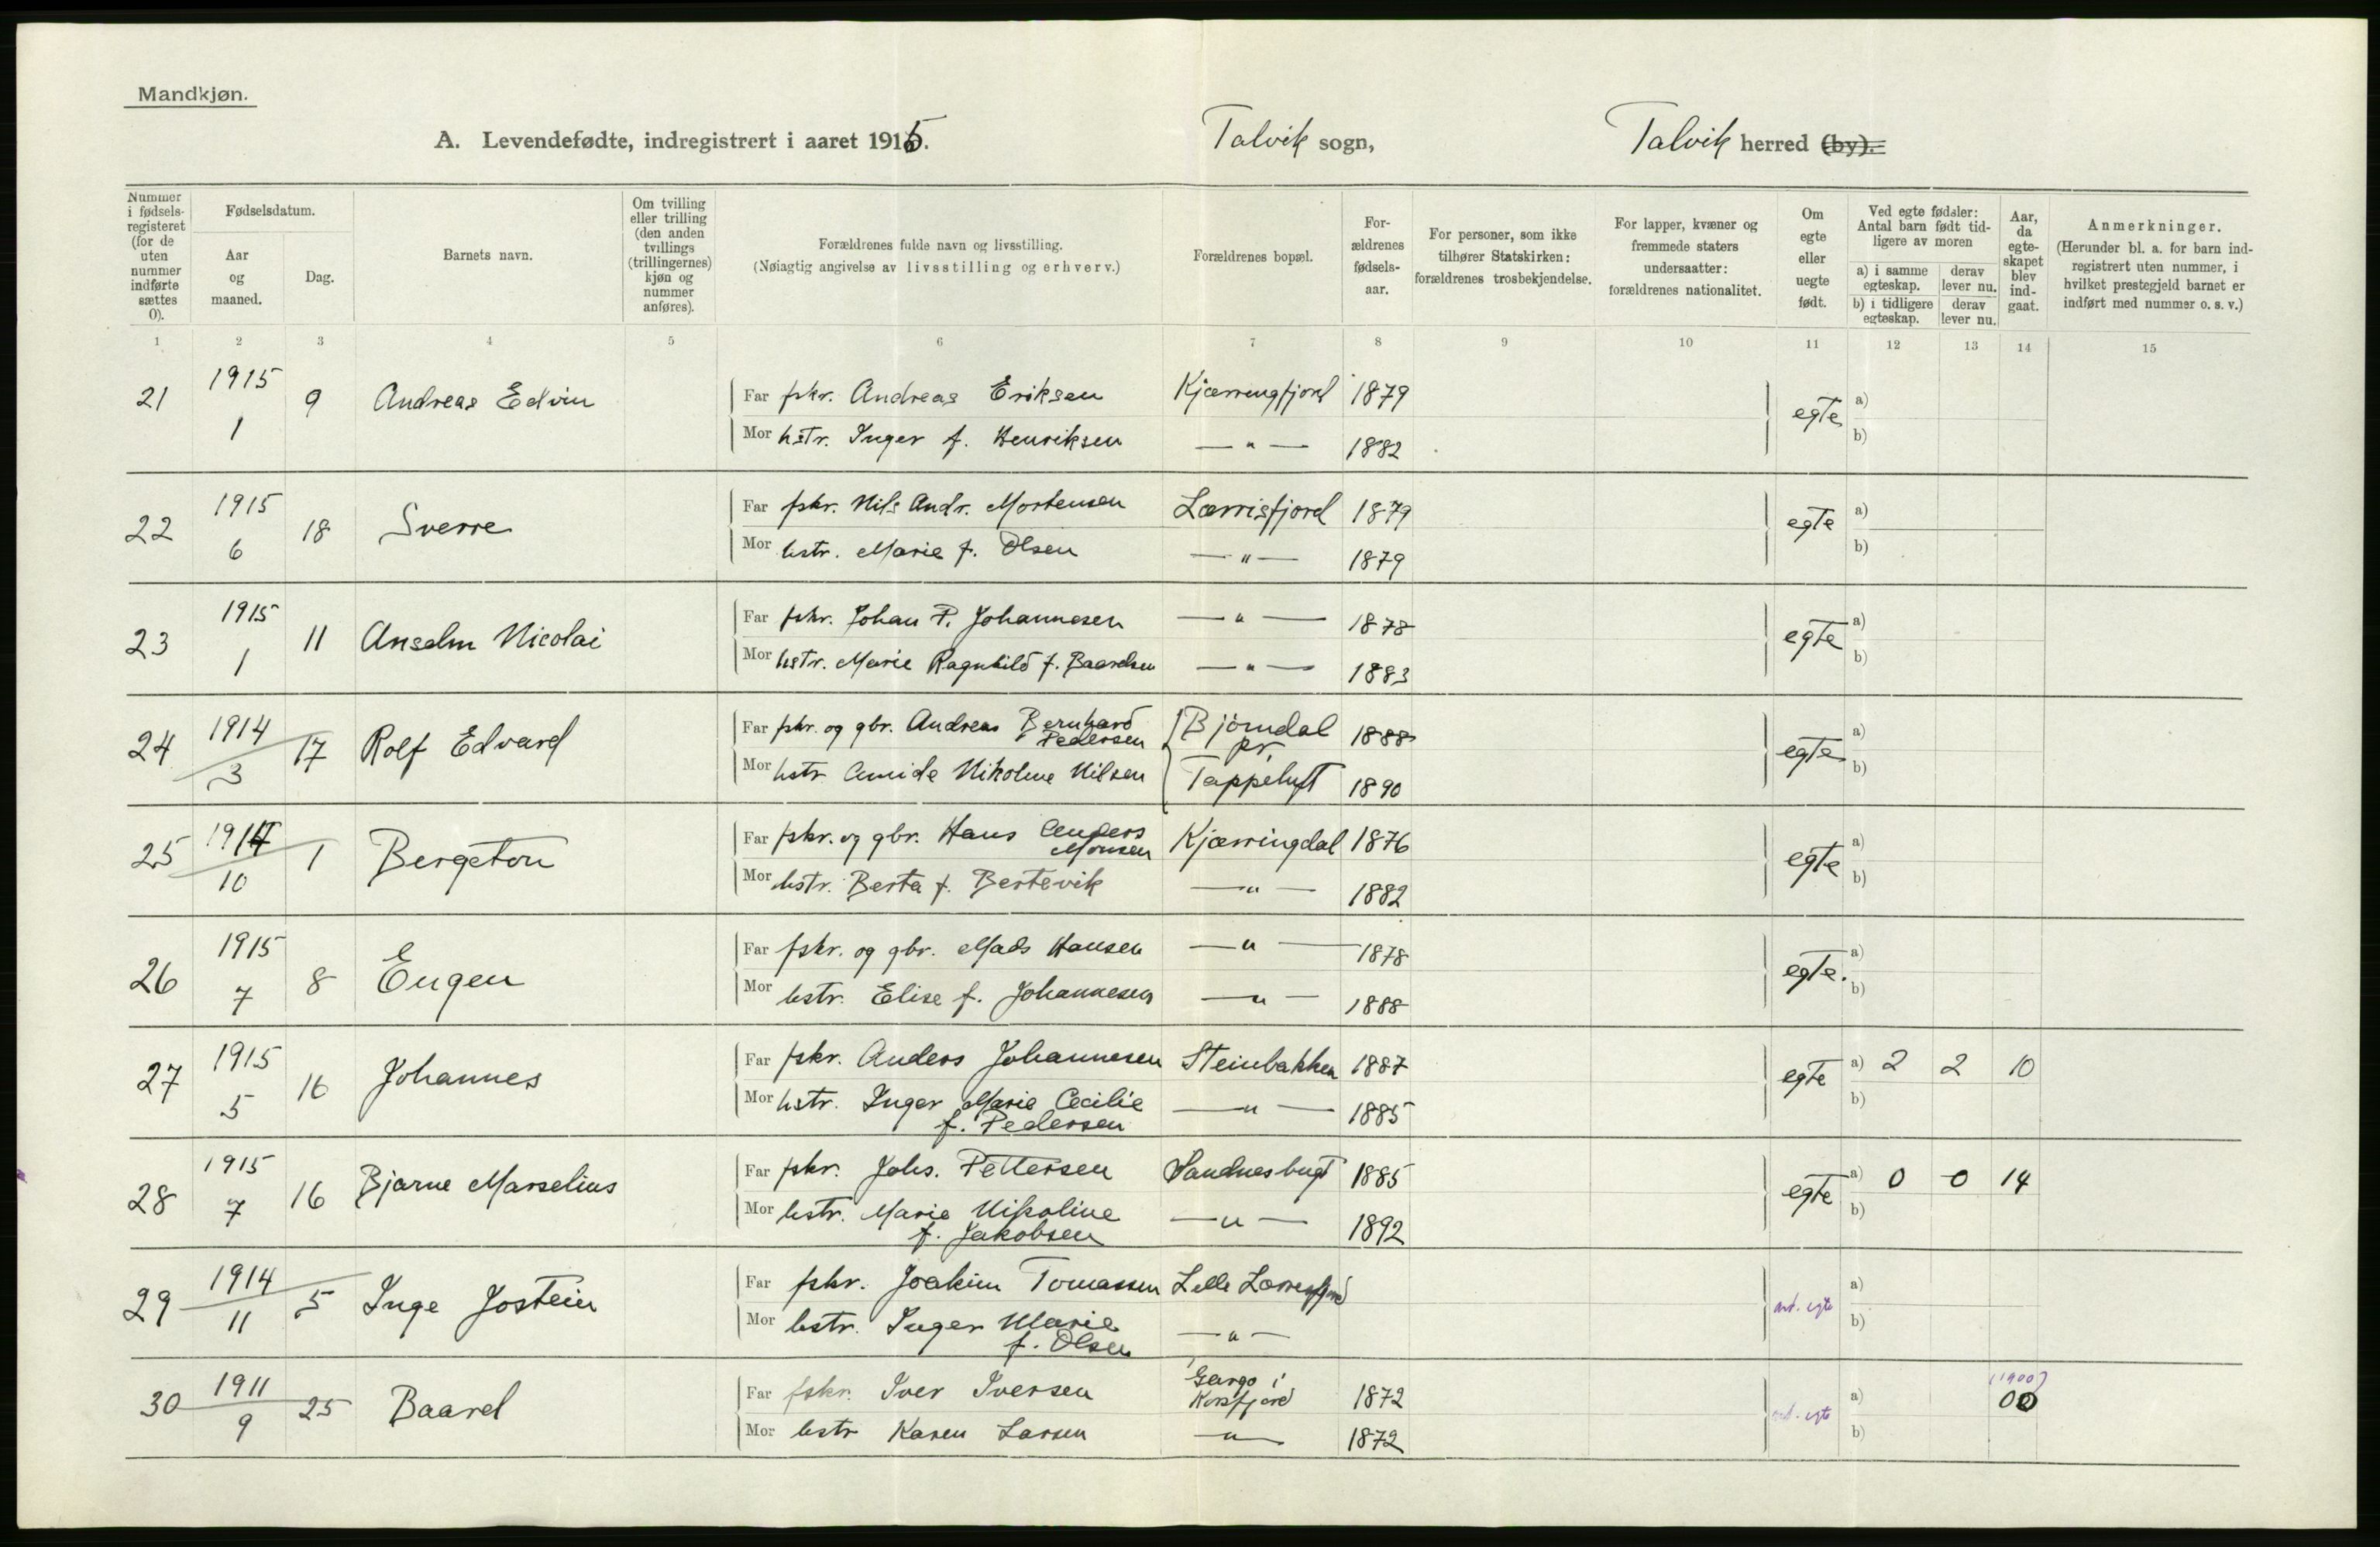 Mandkjøn.
A. Levendefødte, indregistrert i aaret 1915. Talvik sogn, Talvik herred (by).
Nummer i fødsels-registeret (for de uten nummer indførte sættes 0).
Fødselsdatum.
Aar og maaned.
Dag.
Barnets navn.
Om tvilling eller trilling (den anden tvillings (trillingernes) kjøn og nummer anføres).
Forældrenes fulde navn og livsstilling.
(Nøiagtig angivelse av livsstilling og erhverv.)
Forældrenes bopæl.
For-ældrenes fødsels-aar.
For personer, som ikke tilhører Statskirken: forældrenes trosbekjendelse.
For lapper, kvæner og fremmede staters undersaatter: forældrenes nationalitet.
Om egte eller uegte født.
Ved egte fødsler: Antal barn født tid-ligere av moren
a) i samme egteskap. derav lever nu.
b) i tidligere egteskap. derav lever nu.
Aar, da egte-skapet blev ind-gaat.
Anmerkninger.
(Herunder bl. a. for barn ind-registrert uten nummer, i hvilket prestegjeld barnet er indført med nummer o. s. v.)
1 2 3 4 5 6 7 8 9 10 11 12 13 14 15
21 1915 1 9 Andreas Edvin Far fskr. Andreas Eriksen Kjærrengfjord 1879 egte a)
Mor hstr. Inger f. Henriksen — " — 1882 b)
22 1915 6 18 Sverre Far fskr. Nils Andr. Mortensen Lærrisfjord 1879 egte a)
Mor hstr. Marie f. Olsen — " — 1879 b)
23 1915 1 11 Anselm Nicolai Far fskr. Johan P. Johannesen — " — 1878 egte a)
Mor hstr. Marie Ragnhild f. Baardsen — " — 1883 b)
24 1914 3 17 Rolf Edvard Far fskr. og gbr. Andreas Bernhard Pedersen Bjørndal pr. 1888 egte a)
Mor hstr. Amide Nikoline Nilsen Tappeluft 1890 b)
25 1914 10 1 Bergeton Far fskr. og gbr. Hans Anders Monsen Kjærringdal 1876 egte a)
Mor hstr. Berta f. Bertevik — " — 1882 b)
26 1915 7 8 Eugen Far fskr. og gbr. Mads Hansen — " — 1878 egte. a)
Mor hstr. Elise f. Johannesen — " — 1888 b)
27 1915 5 16 Johannes Far fskr. Anders Johannesen Steinbakken 1887 egte a) 2 2 10
Mor hstr. Inger Marie Cecilie f. Pedersen — " — 1885 b)
28 1915 7 16 Bjarne Marselius Far fskr. Johs. Pettersen Sandnesbugt 1885 egte a) 0 0 14
Mor hstr. Marie Nikoline f. Jakobsen — " — 1892 b)
29 1914 11 5 Inge Jostein Far fskr. Joakim Tomassen Lille Lærresfjord ant. egte a)
Mor hstr. Inger Marie f. Olsen — " — b)
30 1911 9 25 Baard Far fskr. Iver Iversen Gargo i Korsfjord 1872 ant. egte a) (1900) 00
Mor hstr Karen Larsen — " — 1872 b)